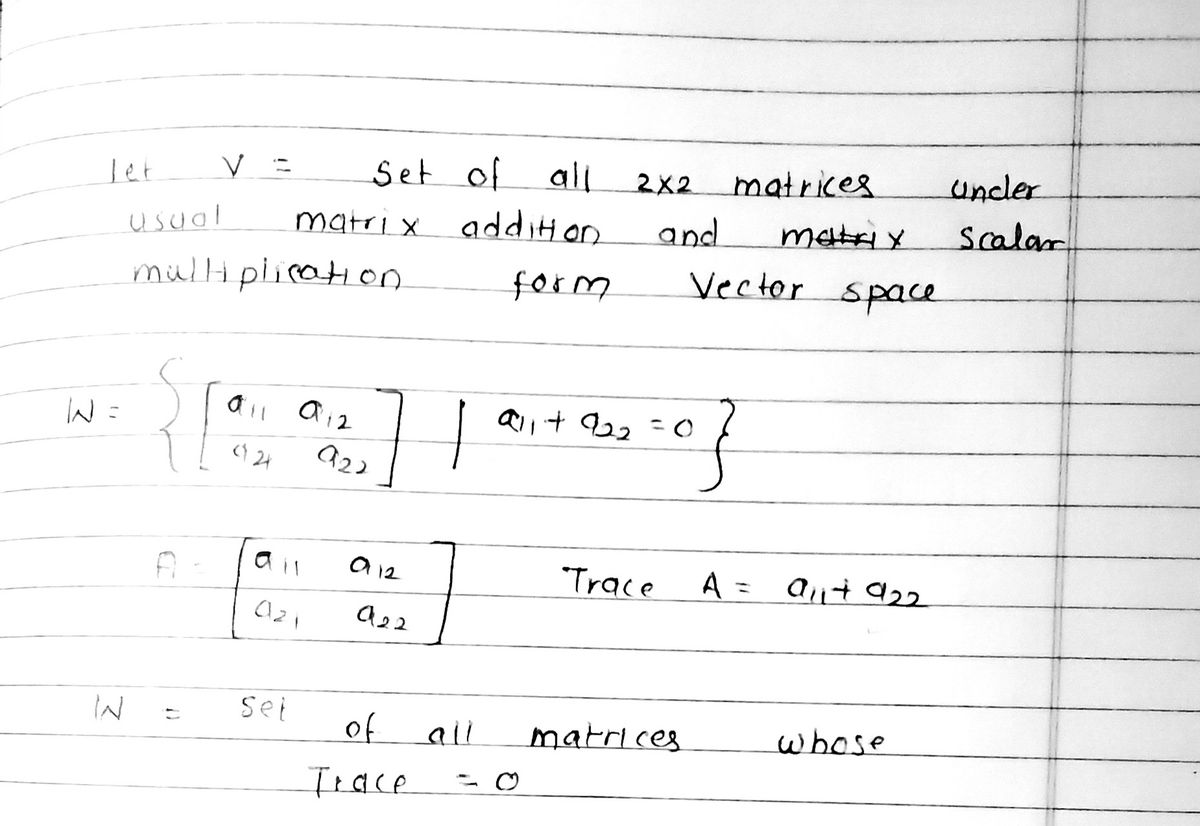 let V = Set of all 2x2 matrices under
usual matrix addition and matrix Scalar
multiplication form Vector space
W = { [ a11 a12
a21 a22 ] | a11 + a22 = 0 }
A = [ a11 a12
a21 a22 ] Trace A = a11 + a22
W = set of all matrices whose
Trace = 0